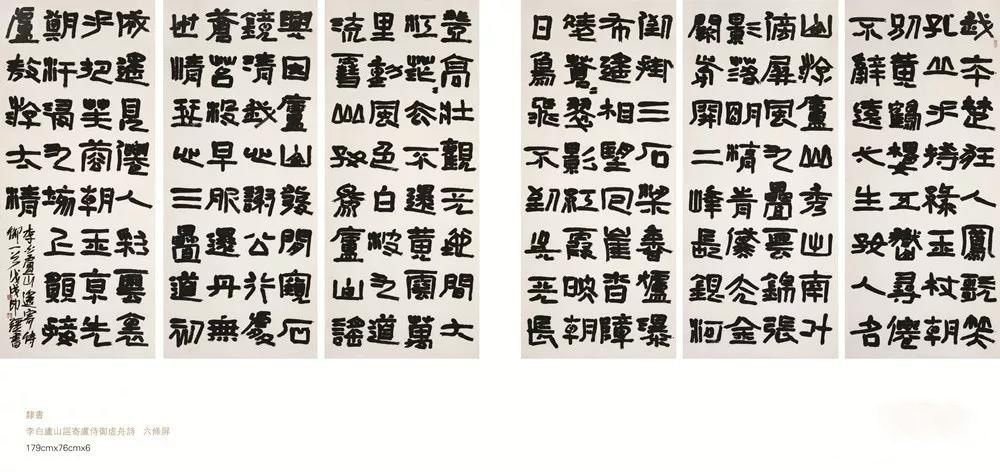 我本楚狂人鳳歌笑
孔丘手持綠玉杖朝
別黃鶴樓五嶽尋僊
不辭遠一生好入名
山遊廬山秀出南斗
傍屏風九疊雲錦張
影落明湖青黛光金
闕前開二峰長銀河
倒掛三石梁香爐瀑
布遙相望回崖沓障
凌蒼〻翠影紅霞映朝
日鳥飛不到吳天長
登高壯觀天地間大
江茫〻去不還黃雲萬
里動風色白波九道
流雪山好為廬山謠
興因廬山發閒窺石
鏡清我心謝公行處
蒼苔沒早服還丹無
世情琴心三疊道初
成遙見僊人彩雲裏
手把芙蓉朝玉京先
期汗漫九垓上願接
盧敖遊太清
李白廬山遙寄侍
御一首戊戌書
隸書
李白廬山謡寄盧侍御虛舟詩 六條屏
179cmx76cmx6